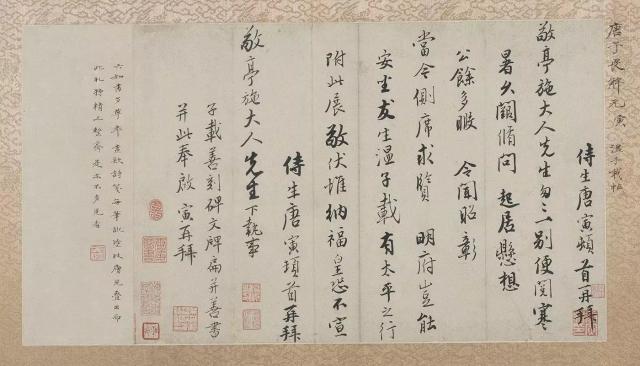 唐子畏解元寅 溫子載帖
侍生唐寅頓首再拜
敬亭施大人先生勿二別便閱寒
暑久闊脩問 起居懸想
公餘多暇 令聞昭彰
當今側席求賢 明府豈能
安坐友生溫子載有太平之行
附此展敬伏惟納福皇恐不宣
侍生唐寅頓首再拜
敬亭施大人先生下執事
子載善刻碑文牌扁并善書
并此奉啟寅再拜
六如書
此札特精工整齊是亦不多見者